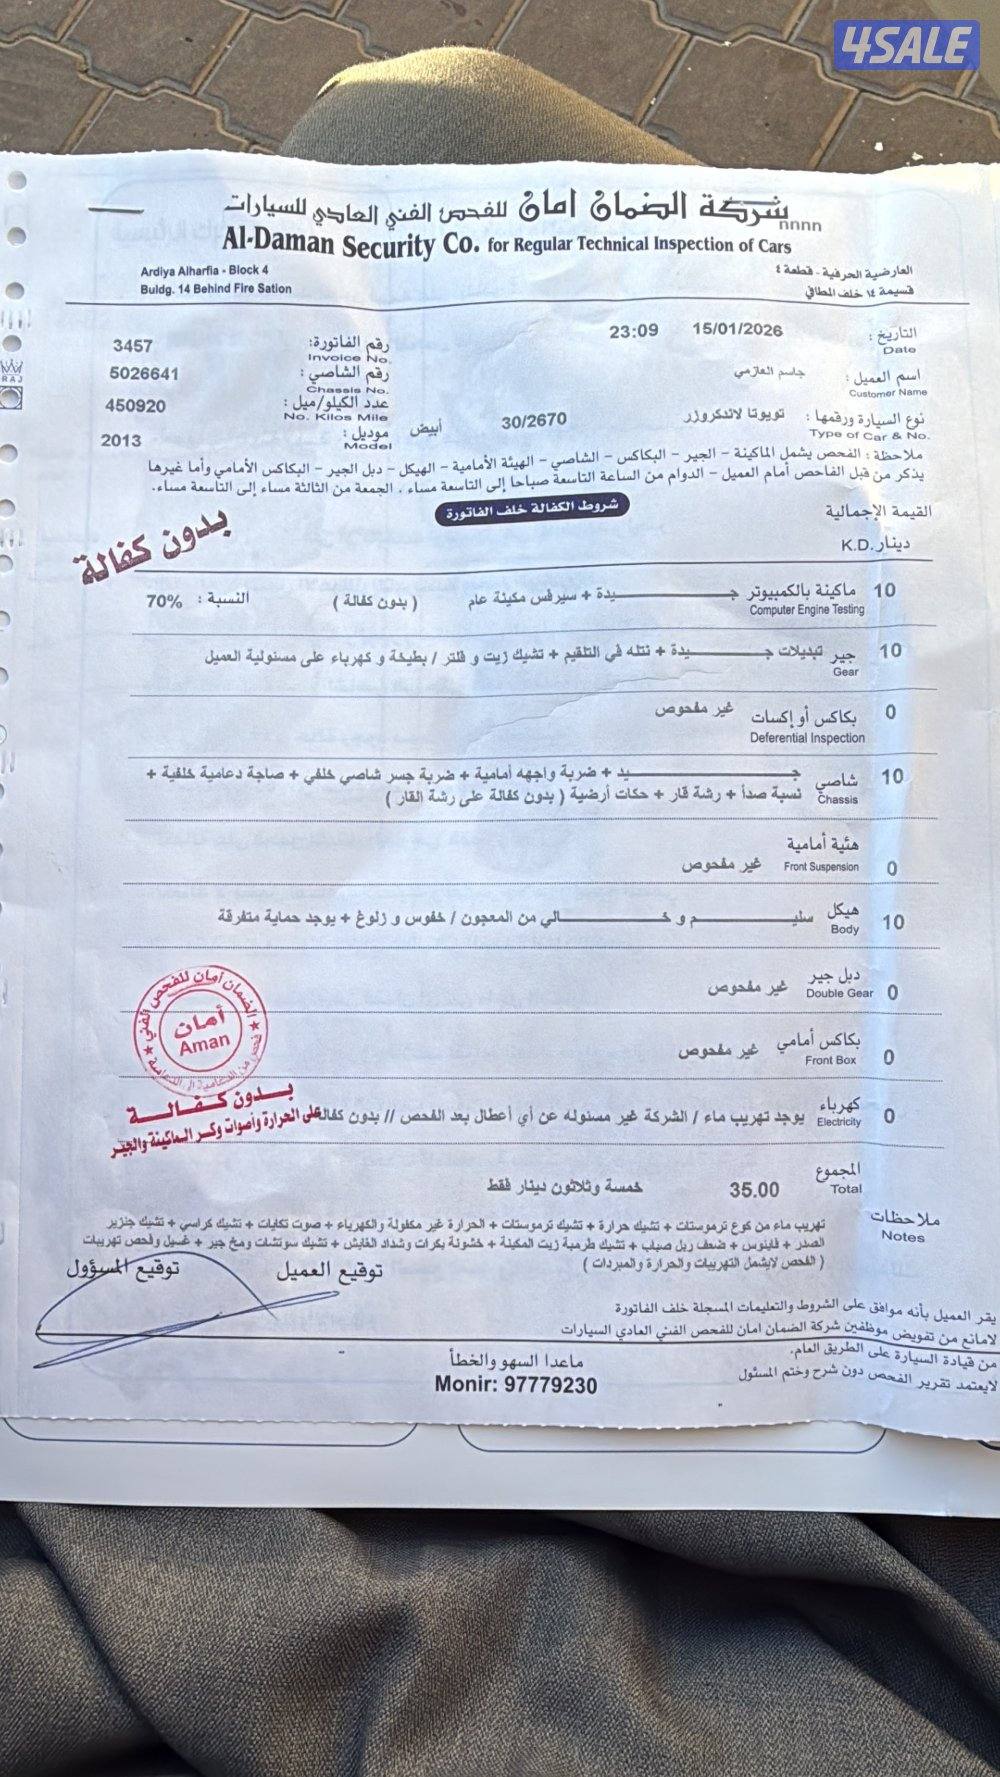 4SALE
شركة الضمان امان للفحص الفني العادي للسيارات
nnnn
Al-Daman Security Co. for Regular Technical Inspection of Cars
العارضية الحرفية - قطعة ٤
قسيمة ١٤ خلف المطافي
Ardiya Alharfia - Block 4
Buldg. 14 Behind Fire Sation
التاريخ : 15/01/2026 23:09
Date
رقم الفاتورة: 3457
Invoice No.
اسم العميل : جاسم العازمي
Customer Name
رقم الشاصي : 5026641
Chassis No.
نوع السيارة ورقمها : تويوتا لاندكروزر 30/2670 أبيض
Type of Car & No.
عدد الكيلو/ميل : 450920
No. Kilos Mile
موديل : 2013
Model
ملاحظة : الفحص يشمل الماكينة - الجير - البكاكس - الشاصي - الهيئة الأمامية - الهيكل - دبل الجير - البكاكس الأمامي وأما غيرها
يذكر من قبل الفاحص أمام العميل - الدوام من الساعة التاسعة صباحا إلى التاسعة مساء ، الجمعة من الثالثة مساء إلى التاسعة مساء.
القيمة الإجمالية
شروط الكفالة خلف الفاتورة
بدون كفالة
دينار K.D.
10 ماكينة بالكمبيوتر جـــــــيدة + سيرفس مكينة عام ( بدون كفالة ) النسبة : 70%
Computer Engine Testing
10 جير تبديلات جـــــــيدة + نتله في التلقيم + تشيك زيت و فلتر / بطيخة و كهرباء على مسئولية العميل
Gear
0 بكاكس أو إكسات غير مفحوص
Deferential Inspection
10 شاصي جـــــــيد + ضربة واجهه أمامية + ضربة جسر شاصي خلفي + صاجة دعامية خلفية +
Chassis نسبة صدأ + رشة قار + حكات أرضية ( بدون كفالة على رشة القار )
0 هئية أمامية غير مفحوص
Front Suspension
10 هيكل سليـــــــم و خـــــــالي من المعجون / خفوس و زلوغ + يوجد حماية متفرقة
Body
0 دبل جير غير مفحوص
Double Gear
0 بكاكس أمامي غير مفحوص
Front Box
أمان
Aman
0 كهرباء يوجد تهريب ماء / الشركة غير مسئوله عن أي أعطال بعد الفحص // بدون كفالة
Electricity
بدون كفالة
على الحرارة وأصوات وكر الماكينة والجير
المجموع 35.00 خمسة وثلاثون دينار فقط
Total
ملاحظات تهريب ماء من كوع ترموستات + تشيك حرارة + تشيك ترموستات + الحرارة غير مكفولة والكهرباء + صوت تكايات + تشيك كراسي + تشيك جنزير
Notes الصدر + فاينوس + ضعف ربل صباب + تشيك طرمبة زيت المكينة + خشونة بكرات وشداد القايش + تشيك سوتشات ومخ جير + غسيل وفحص تهريبات
( الفحص لايشمل التهريبات والحرارة والمبردات )
توقيع العميل
توقيع المسؤول
يقر العميل بأنه موافق على الشروط والتعليمات المسجلة خلف الفاتورة
لامانع من تفويض موظفين شركة الضمان امان للفحص الفني العادي السيارات
من قيادة السيارة على الطريق العام.
لايعتمد تقرير الفحص دون شرح وختم المسئول
ماعدا السهو والخطأ
Monir: 97779230